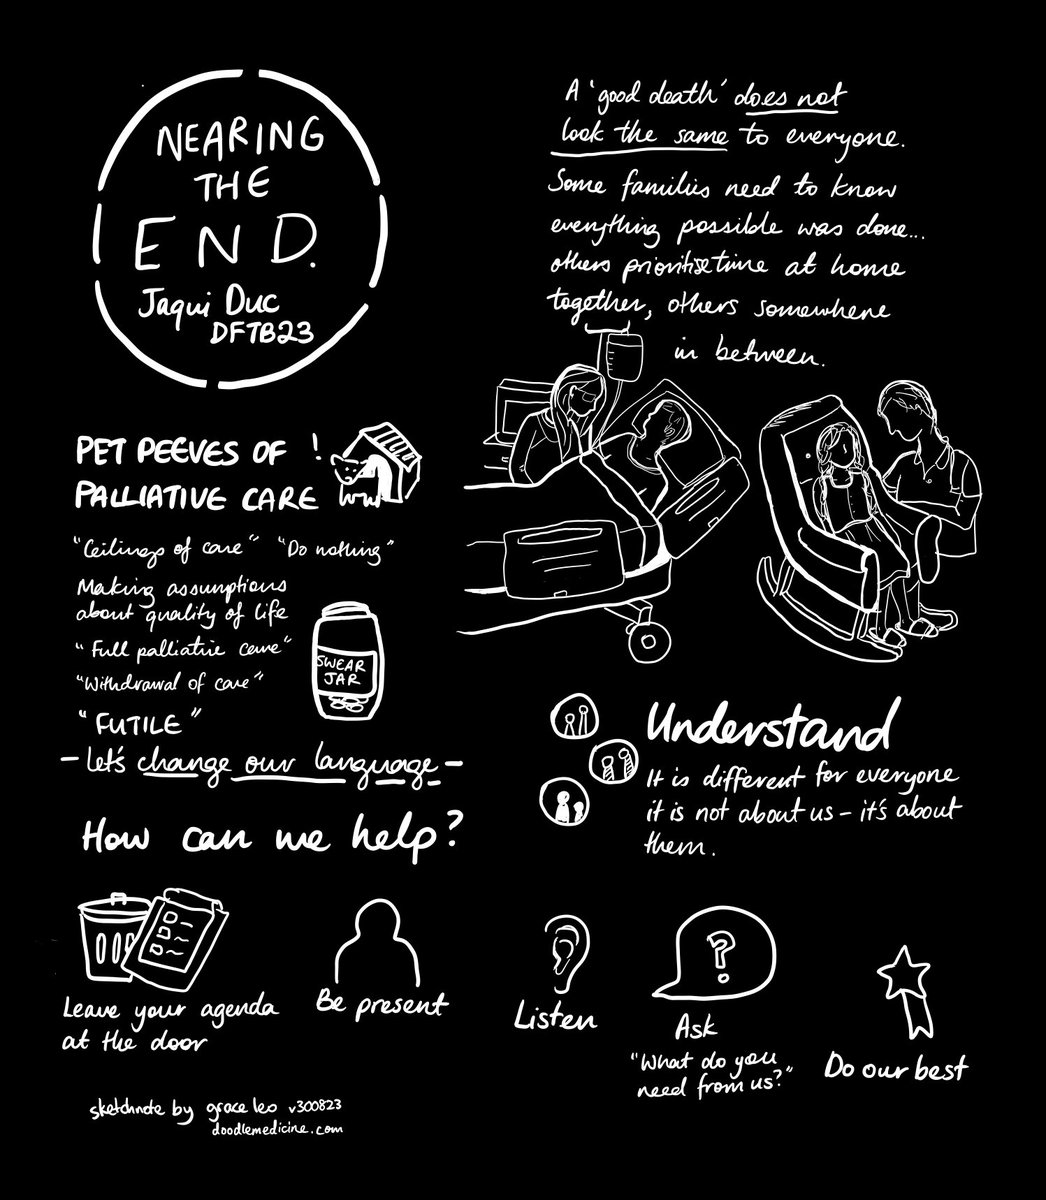 NEARING
THE
END.
Jaqui Duc
DFTB23
A 'good death' does not
look the same to everyone.
Some families need to know
everything possible was done...
others prioritise time at home
together, others somewhere
in between.
PET PEEVES OF !
PALLIATIVE CARE
"Ceilings of care" "Do nothing"
Making assumptions
about quality of life
"Full palliative care"
"Withdrawal of care"
"FUTILE"
SWEAR
JAR
- Let's change our language -
Understand
It is different for everyone
it is not about us - it's about
them.
How can we help?
Leave your agenda
at the door
Be present
Listen
?
Ask
"What do you
need from us?"
Do our best
sketchnote by grace leo v300823
doodlemedicine.com